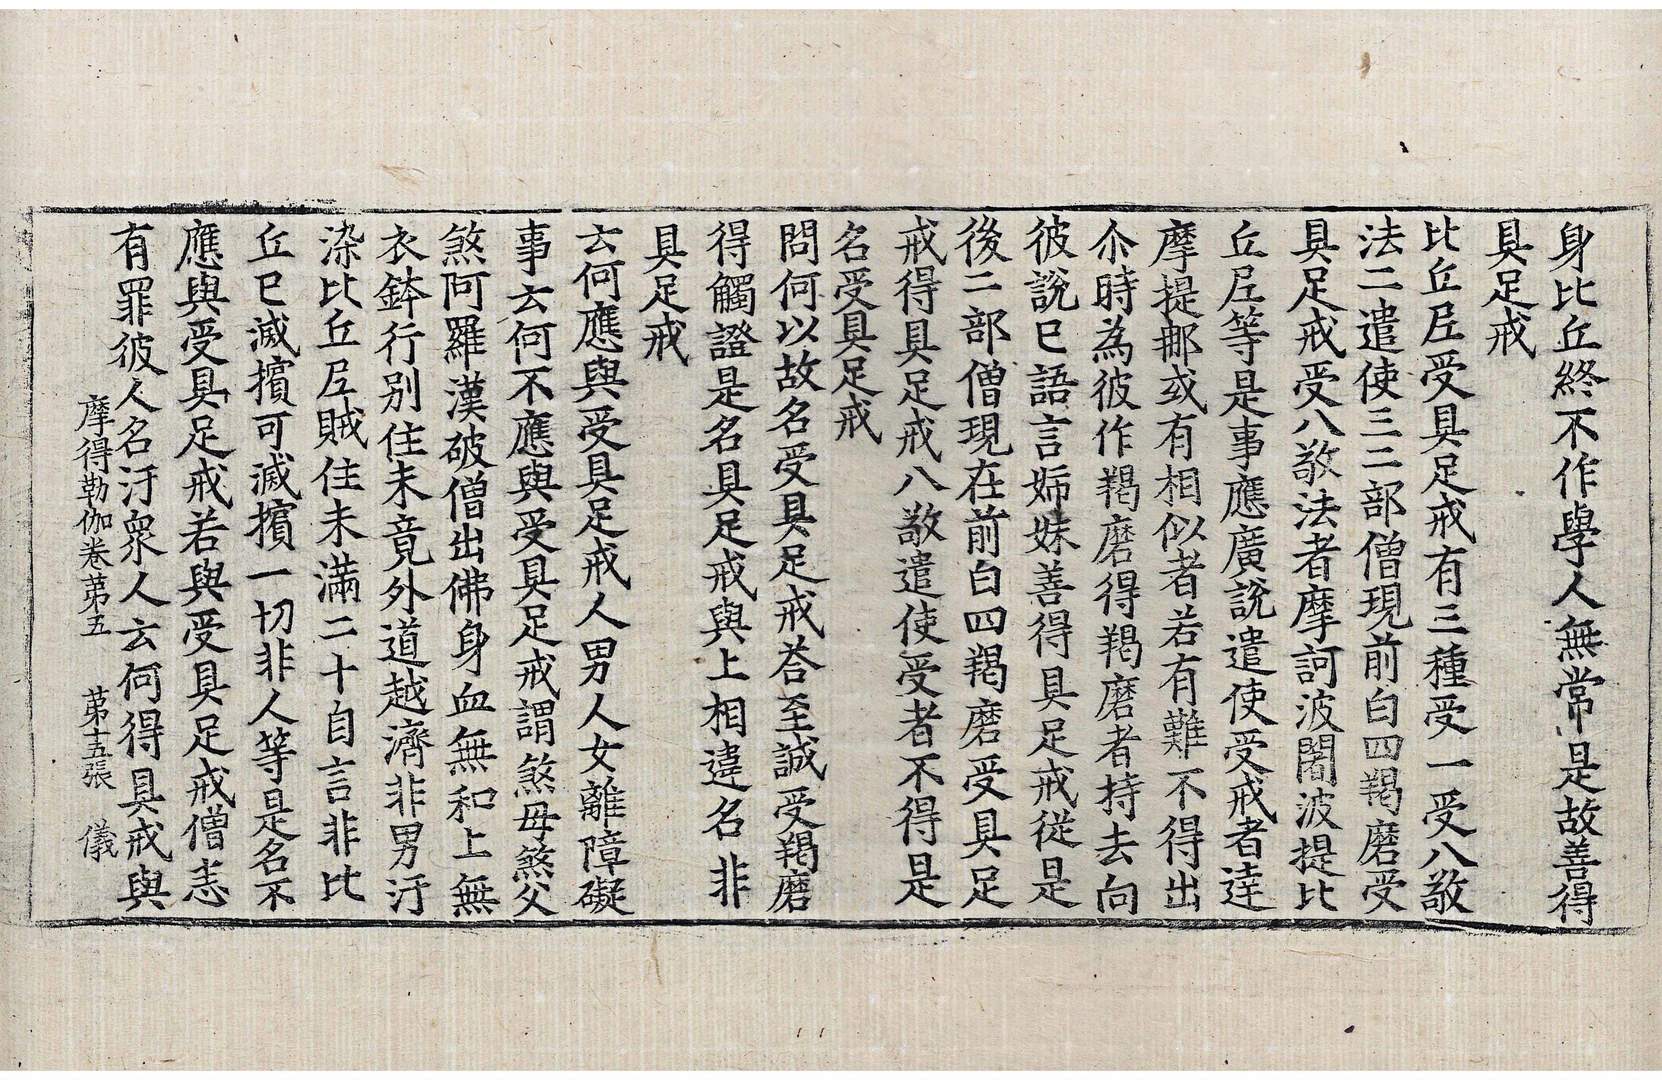 身比丘終不作學人無常是故善得
具足戒
比丘尼受具足戒有三種受一受八敬
法二遣使三二部僧現前白四羯磨受
具足戒受八敬法者摩訶波闍波提比
丘尼等是事應廣說遣使受戒者達
摩提那或有相似者若有難不得出
尒時為彼作羯磨得羯磨者持去向
彼說已語言姊妹善得具足戒從是
後二部僧現在前白四羯磨受具足
戒得具足戒八敬遣使受者不得是
名受具足戒
問何以故名受具足戒荅至誠受羯磨
得觸證是名具足戒與上相違名非
具足戒
云何應與受具足戒人男人女離障礙
事云何不應與受具足戒謂煞母煞父
煞阿羅漢破僧出佛身血無和上無
衣鉢行別住未竟外道越濟非男汙
染比丘尼賊住未滿二十自言非比
丘已滅擯可滅擯一切非人等是名不
應與受具足戒若與受具足戒僧恚
有罪彼人名汙衆人云何得具戒與
摩得勒伽卷苐五　苐十五張　儀